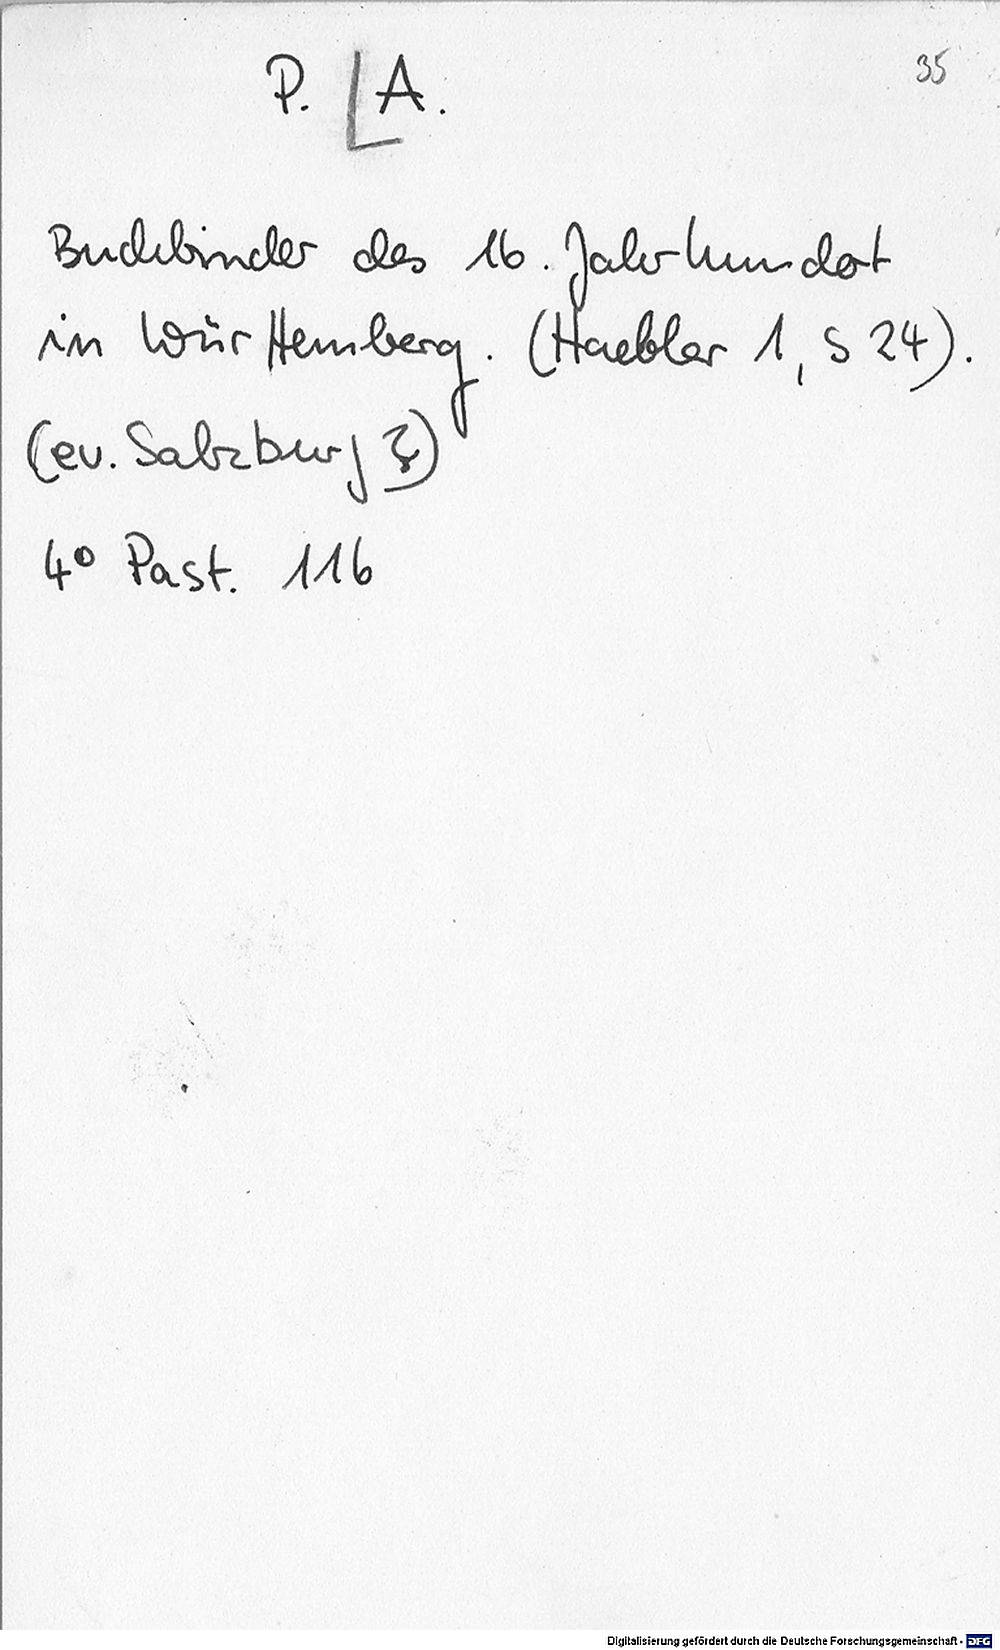 35
P. [A.
Buchbinder des 16. Jahrhundert
in Württemberg. (Haebler 1, S 24).
(ev. Salzburg ?)
4° Past. 116
Digitalisierung gefördert durch die Deutsche Forschungsgemeinschaft - DFG